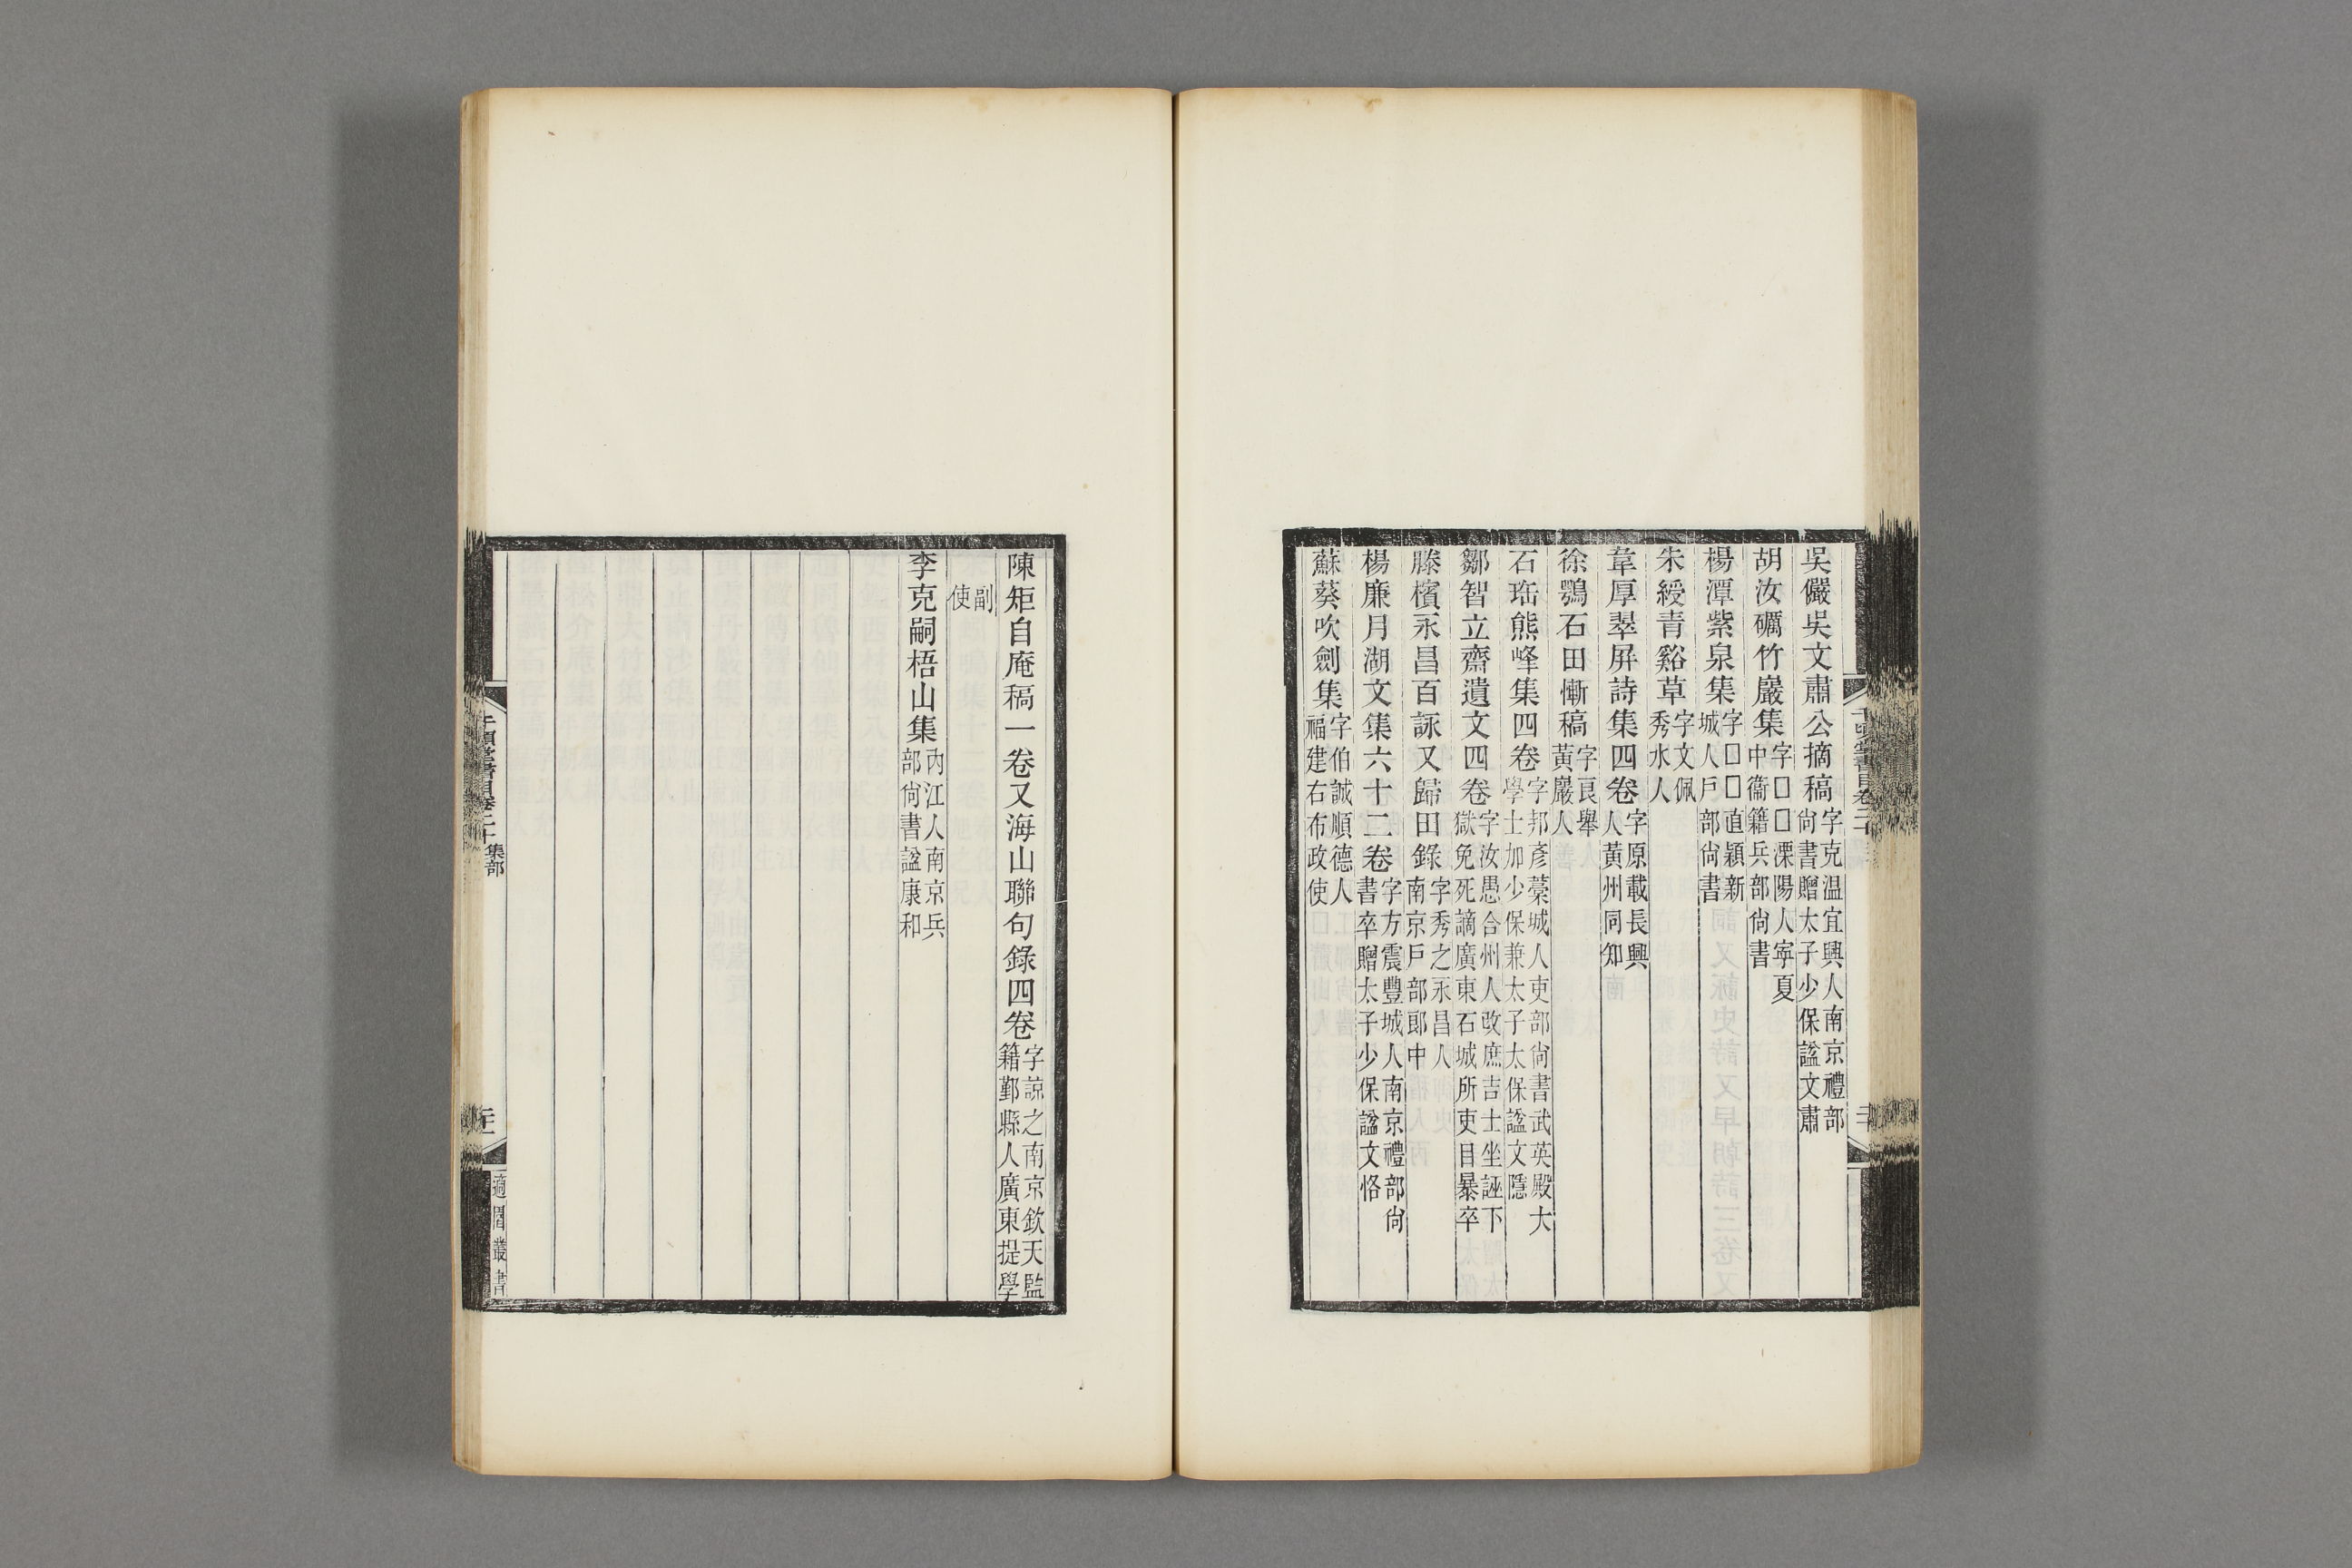 吳儼吳文肅公摘稿字克温宜興人南京禮部尙書贈太子少保諡文肅
胡汝礪竹巖集字□□溧陽人寧夏中衞籍兵部尙書
楊潭紫泉集字□□直穎新城人戶部尙書
朱綬青谿草字文佩秀水人
韋厚翠屏詩集四卷字原載長興人黃州同知
徐鶚石田慚稿字艮舉黃巖人
石珤熊峰集四卷字邦彥藁城人吏部尙書武英殿大學士加少保兼太子太保諡文隱
鄒智立齋遺文四卷字汝愚合州人改庶吉士坐誣下獄免死謫廣東石城所吏目暴卒
滕檟永昌百詠又歸田錄字秀之永昌人南京戶部郎中
楊廉月湖文集六十二卷字方震豐城人南京禮部尙書卒贈太子少保諡文恪
蘇葵吹劍集字伯誠順德人福建右布政使
陳矩自庵稿一卷又海山聯句錄四卷字諒之南京欽天監籍鄞縣人廣東提學
副使
李克嗣梧山集內江人南京兵部尙書諡康和
千頃堂書目卷二十 集部
適園叢書